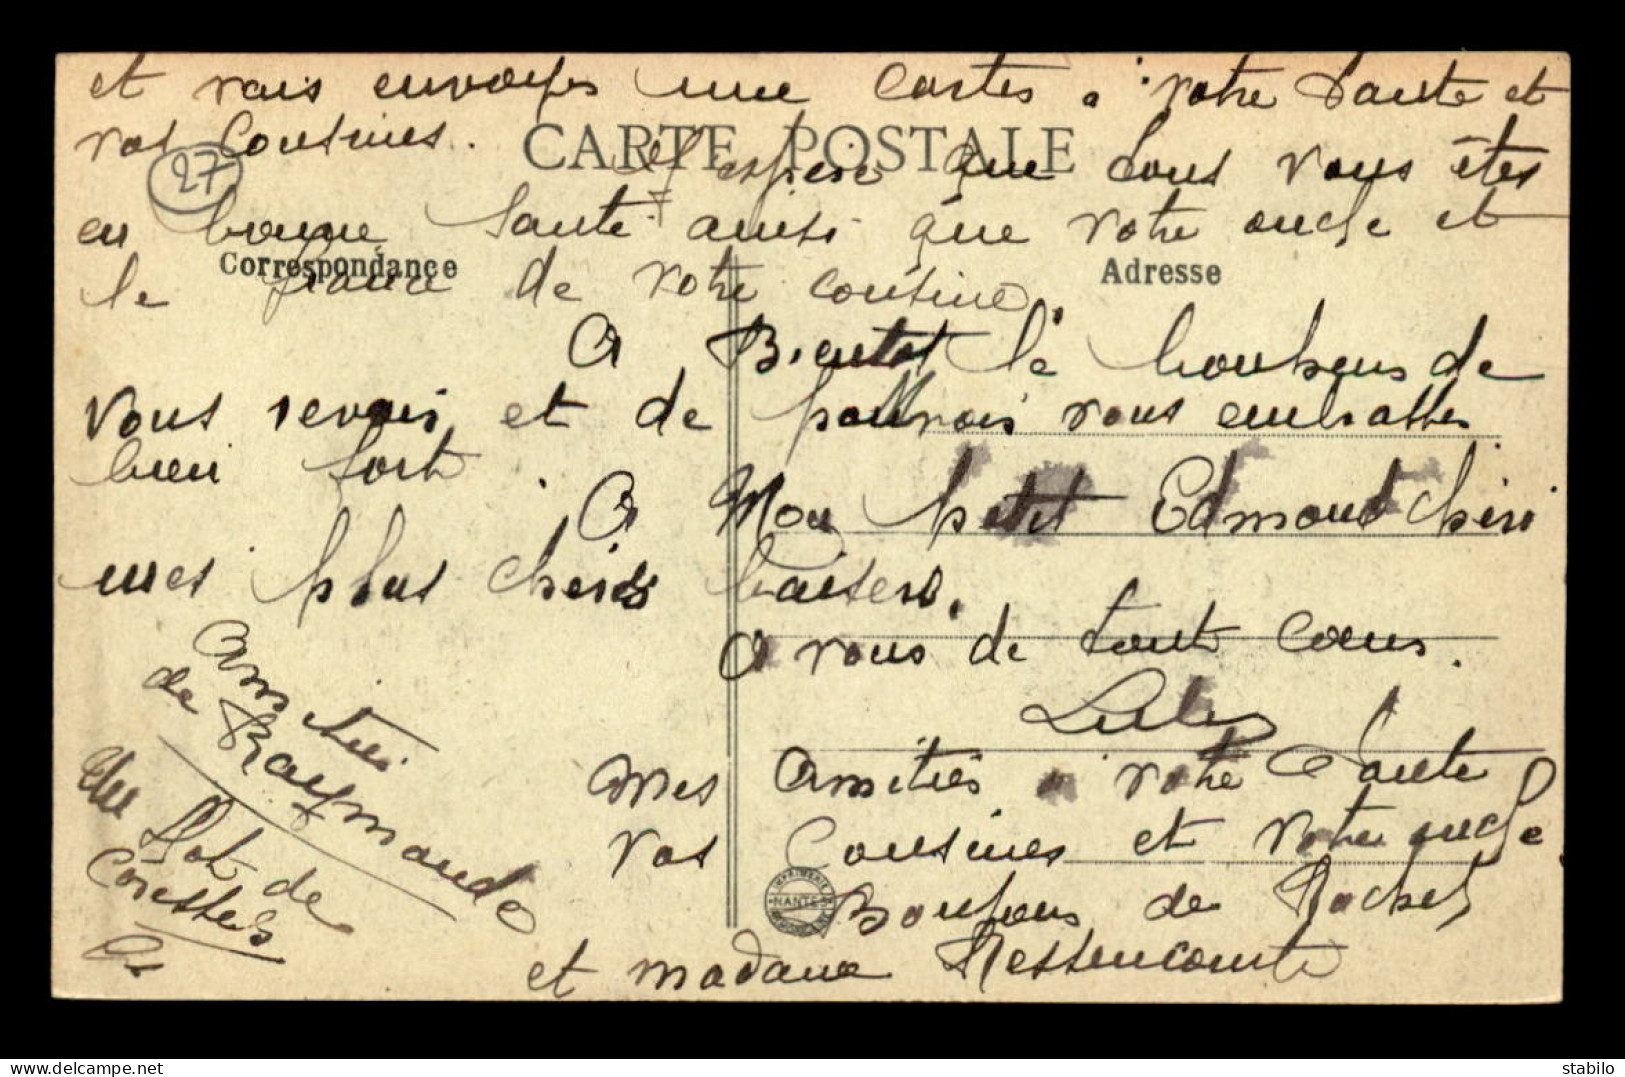 et vais envoyes une cartes a votre Tante et
vos Cousines.
CARTE POSTALE
27
J'espere que tous vous êtes
en bonne Santé ainsi que votre oncle et
Correspondance
Adresse
le fiancé de votre cousine.
A Bientot le bonheur de
vous revois et de pouvois vous embrasses
bien fort.
A Mon petit Edmond cheri
mes plus cheres baisers.
A vous de tout Coeur.
Lulu
Mes Amitiés a votre Tante
vos Cousines et votre oncle
Bonjours de Rachel
et madame
Amitiés
de Raymonde
de
IMPRIMERIE
NANTES